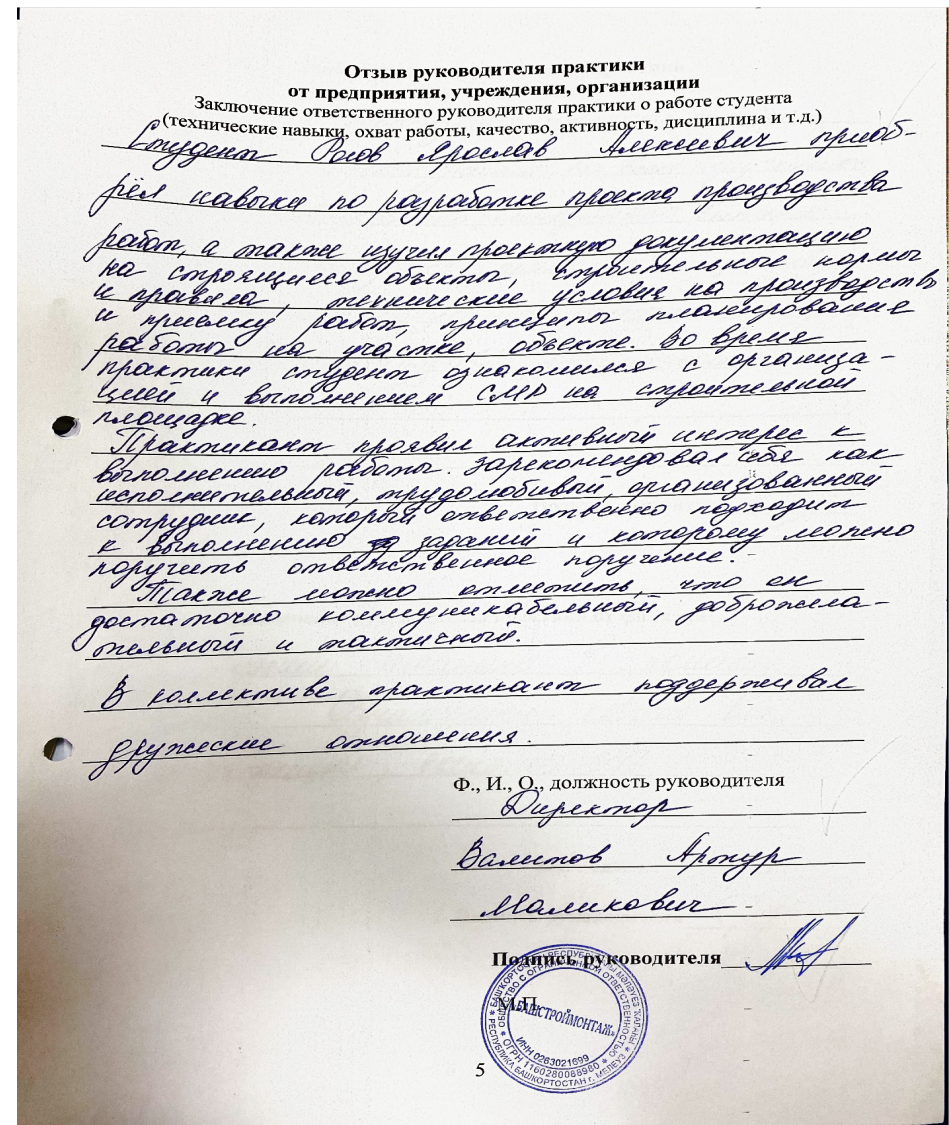 Отзыв руководителя практики
от предприятия, учреждения, организации
Заключение ответственного руководителя практики о работе студента
(технические навыки, охват работы, качество, активность, дисциплина и т.д.)
Студент Рогов Ярослав Алексеевич приоб-
рёл навыки по разработке проекта производства
работ, а также изучил проектную документацию
на строящиеся объекты, строительные нормы
и правила, технические условия на производство
и приемку работ, принципы планирование
работы на участке, объекте. Во время
практики студент ознакомился с организа-
цией и выполнением СМР на строительной
площадке.
Практикант проявил активный интерес к
выполнению работы. Зарекомендовал себя как
исполнительный, трудолюбивый, организованный
сотрудник, который ответственно подходит
к выполнению заданий и которому можно
поручить ответственное поручение.
Также можно отметить, что он
достаточно коммуникабельный, доброжела-
тельный и тактичный.
В коллективе практикант поддерживал
дружеские отношения.
Ф., И., О., должность руководителя
Директор
Валитов Артур
Маликович
Подпись руководителя
М.П.
БАШКОРТОСТАН РЕСПУБЛИКАҺЫ МӘЛӘҮЕЗ ҠАЛАҺЫ
ОБЩЕСТВО С ОГРАНИЧЕННОЙ ОТВЕТСТВЕННОСТЬЮ
«БАШСТРОЙМОНТАЖ»
ИНН 0263021699
ОГРН 1160280088980
РЕСПУБЛИКА БАШКОРТОСТАН г. МЕЛЕУЗ
5